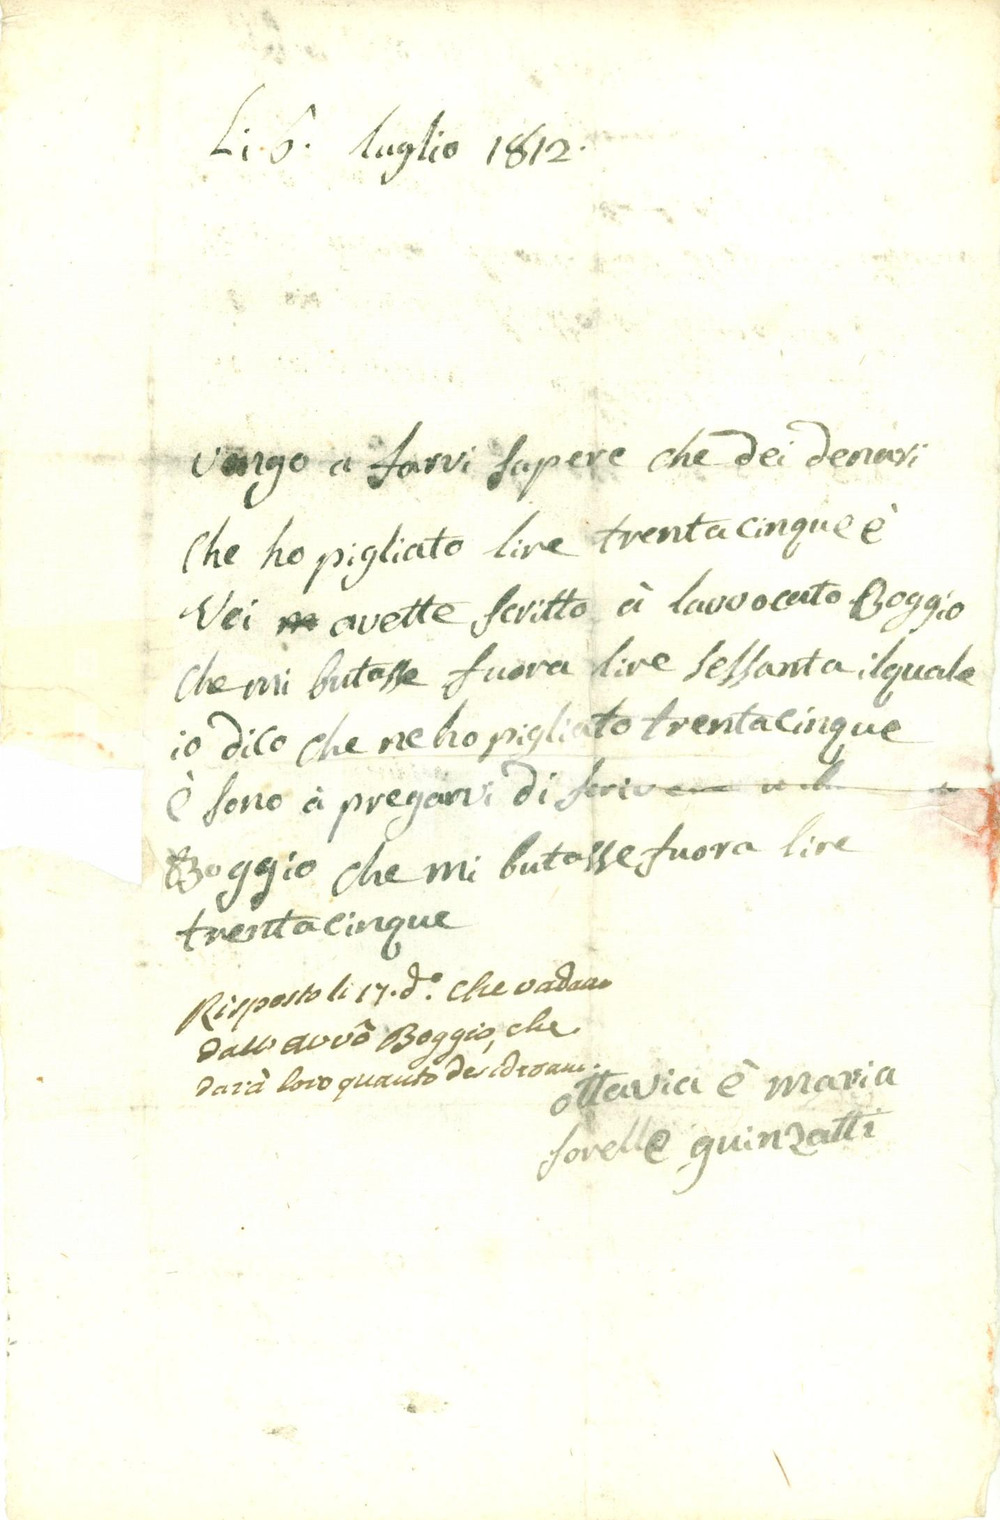 Li. 6. luglio 1812.
vengo a farvi sapere che dei denari
che ho pigliato lire trentacinque è
Voi avette scritto à lavvocato Boggio
che mi butasse fuora lire sessanta ilquale
io dico che ne ho pigliato trentacinque
è sono à pregarvi di
Boggio che mi butasse fuora lire
trentacinque
Risposto li 17. do. che vadano
dall' avvo Boggio, che
darà loro quanto desiderano.
ottavia è maria
sorelle guinzatti